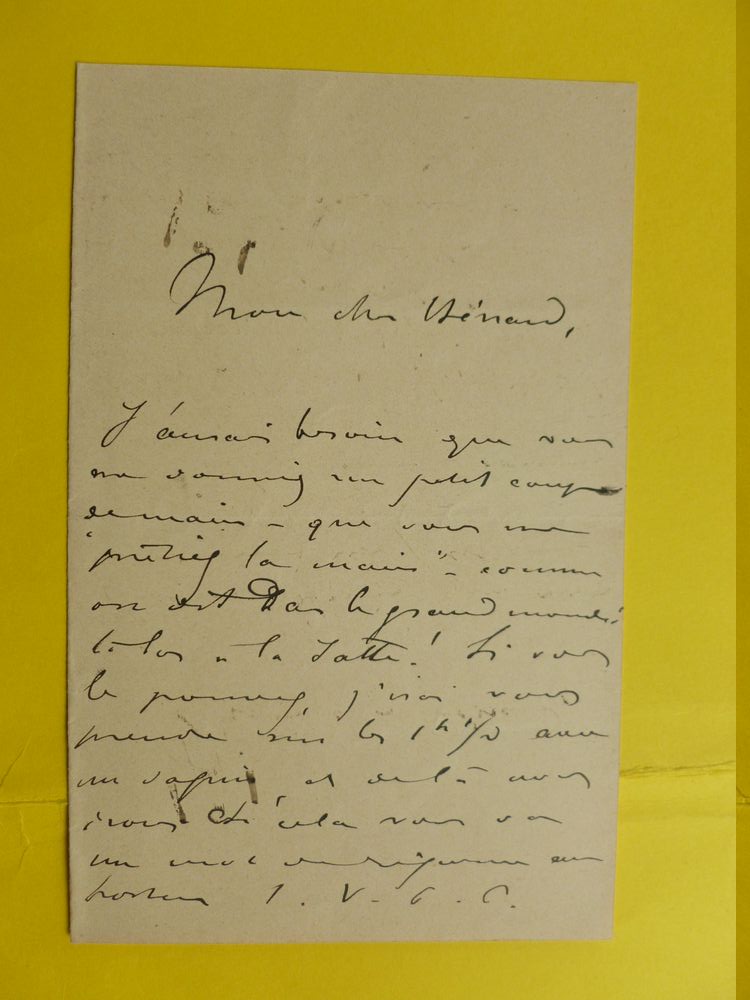 Mon cher Hénard,
J'aurais besoin que vous
me donniez un petit coup
demain - que vous me
"prêtiez la main" - comme
on dit Dans le grand monde
la Jatte! Si vous
le pouvez, j'irai vous
prendre sur les 1h 1/2 avec
un sapin et de là nous
irons Si cela vous va
un mot de réponse au
porteur S. V. P.